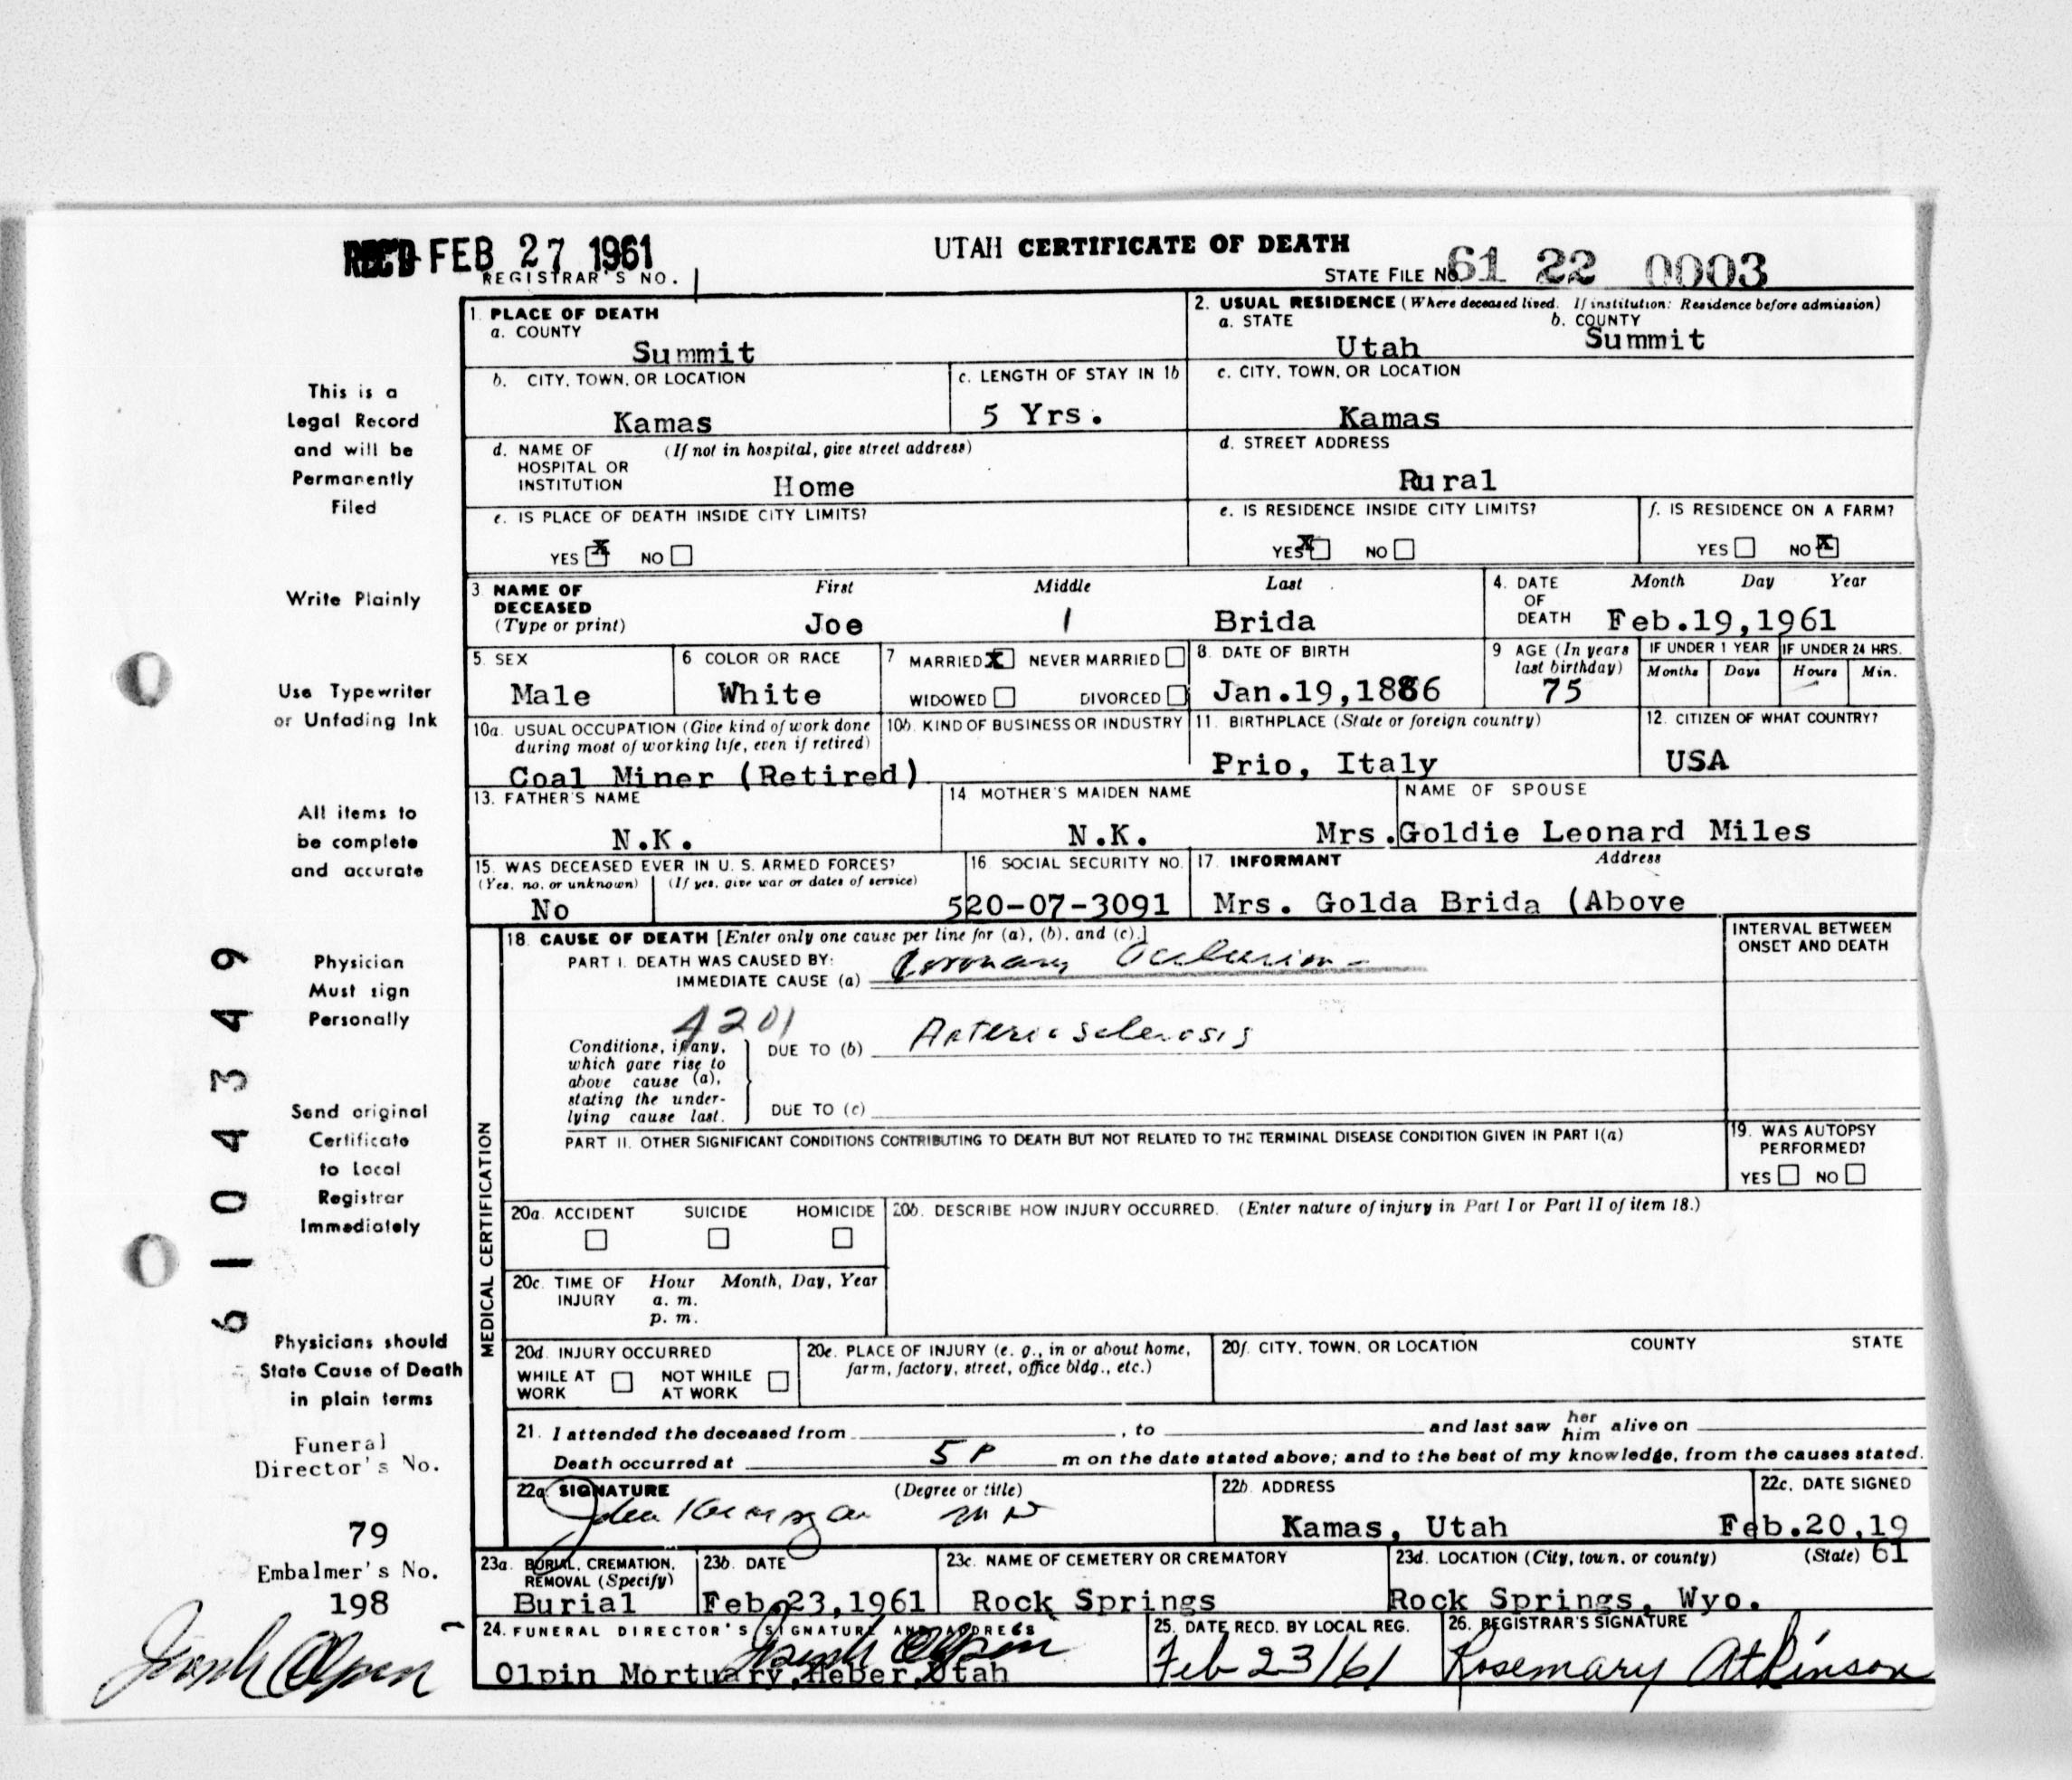 REC'D FEB 27 1961
UTAH CERTIFICATE OF DEATH
REGISTRAR'S NO. 1
STATE FILE NO. 61 22 0003
This is a
Legal Record
and will be
Permanently
Filed
Write Plainly
Use Typewriter
or Unfading Ink
All items to
be complete
and accurate
Physician
Must sign
Personally
Send original
Certificate
to Local
Registrar
Immediately
Physicians should
State Cause of Death
in plain terms
Funeral
Director's No.
79
Embalmer's No.
198
61 04349
1. PLACE OF DEATH
a. COUNTY
Summit
2. USUAL RESIDENCE (Where deceased lived. If institution: Residence before admission)
a. STATE b. COUNTY
Utah Summit
b. CITY, TOWN, OR LOCATION
Kamas
c. LENGTH OF STAY IN 1b
5 Yrs.
c. CITY, TOWN, OR LOCATION
Kamas
d. NAME OF (If not in hospital, give street address)
HOSPITAL OR
INSTITUTION Home
d. STREET ADDRESS
Rural
e. IS PLACE OF DEATH INSIDE CITY LIMITS?
YES X NO
e. IS RESIDENCE INSIDE CITY LIMITS?
YES X NO
f. IS RESIDENCE ON A FARM?
YES NO X
3. NAME OF DECEASED (Type or print)
First Middle Last
Joe / Brida
4. DATE OF DEATH
Month Day Year
Feb.19,1961
5. SEX
Male
6 COLOR OR RACE
White
7 MARRIED X NEVER MARRIED
WIDOWED DIVORCED
8. DATE OF BIRTH
Jan.19,1886
9 AGE (In years
last birthday)
75
IF UNDER 1 YEAR
Months Days
IF UNDER 24 HRS.
Hours Min.
10a. USUAL OCCUPATION (Give kind of work done
during most of working life, even if retired)
Coal Miner (Retired)
10b. KIND OF BUSINESS OR INDUSTRY
11. BIRTHPLACE (State or foreign country)
Prio, Italy
12. CITIZEN OF WHAT COUNTRY?
USA
13. FATHER'S NAME
N.K.
14 MOTHER'S MAIDEN NAME
N.K.
NAME OF SPOUSE
Mrs.Goldie Leonard Miles
15. WAS DECEASED EVER IN U. S. ARMED FORCES?
(Yes, no, or unknown) (If yes, give war or dates of service)
No
16 SOCIAL SECURITY NO.
520-07-3091
17. INFORMANT Address
Mrs. Golda Brida (Above
MEDICAL CERTIFICATION
18. CAUSE OF DEATH [Enter only one cause per line for (a), (b), and (c).]
PART I. DEATH WAS CAUSED BY:
IMMEDIATE CAUSE (a) Coronary Occlusion
INTERVAL BETWEEN
ONSET AND DEATH
4201
Conditions, if any,
which gave rise to
above cause (a),
stating the under-
lying cause last.
DUE TO (b) Arteriosclerosis
DUE TO (c)
PART II. OTHER SIGNIFICANT CONDITIONS CONTRIBUTING TO DEATH BUT NOT RELATED TO THE TERMINAL DISEASE CONDITION GIVEN IN PART I(a)
19. WAS AUTOPSY
PERFORMED?
YES NO
20a. ACCIDENT SUICIDE HOMICIDE
20b. DESCRIBE HOW INJURY OCCURRED. (Enter nature of injury in Part I or Part II of item 18.)
20c. TIME OF INJURY
Hour Month, Day, Year
a. m.
p. m.
20d. INJURY OCCURRED
WHILE AT WORK NOT WHILE AT WORK
20e. PLACE OF INJURY (e. g., in or about home,
farm, factory, street, office bldg., etc.)
20f. CITY, TOWN, OR LOCATION COUNTY STATE
21. I attended the deceased from , to and last saw her him alive on
Death occurred at 5 P m on the date stated above; and to the best of my knowledge, from the causes stated.
22a. SIGNATURE (Degree or title)
M D
22b. ADDRESS
Kamas, Utah
22c. DATE SIGNED
Feb.20,19
61
23a. BURIAL, CREMATION,
REMOVAL (Specify)
Burial
23b. DATE
Feb.23,1961
23c. NAME OF CEMETERY OR CREMATORY
Rock Springs
23d. LOCATION (City, town, or county) (State)
Rock Springs, Wyo.
24. FUNERAL DIRECTOR'S SIGNATURE AND ADDRESS
Olpin Mortuary,Heber,Utah
25. DATE RECD. BY LOCAL REG.
Feb 23/61
26. REGISTRAR'S SIGNATURE
Rosemary Atkinson